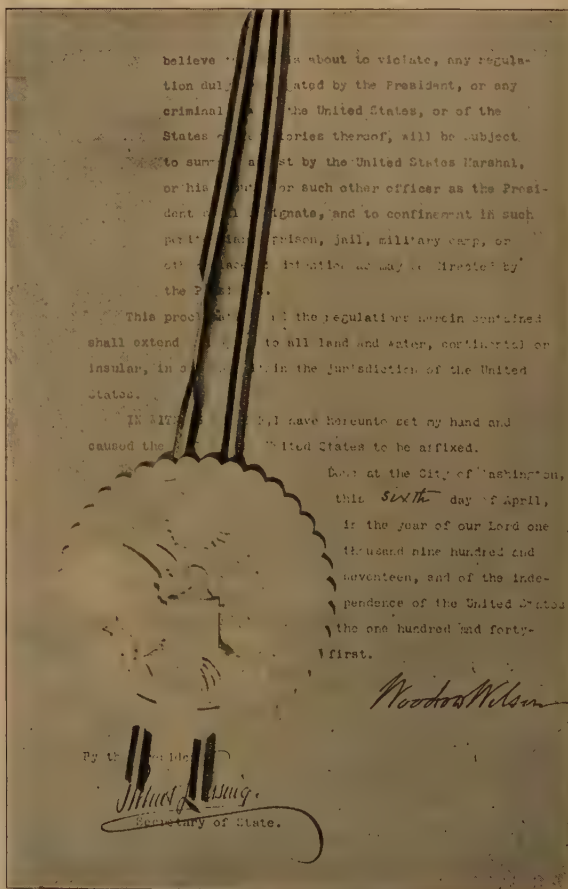 believe about to violate, any regula-
tion dul ated by the President, or any
criminal the United States, or of the
States ories thereof, will be subject
to sum a st by the United States Marshal,
or his or such other officer as the Presi-
dent ignate, and to confinement in such
prison, jail, military camp, or
detention as may be directed by
the P
This procl the regulations herein contained
shall extend to all land and water, continental or
insular, in in the jurisdiction of the United
States.
I have hereunto set my hand and
caused the United States to be affixed.
Done at the City of Washington,
this sixth day of April,
in the year of our Lord one
thousand nine hundred and
seventeen, and of the inde-
pendence of the United States
the one hundred and forty-
first.
Woodrow Wilson
By th
Lansing.
Secretary of State.